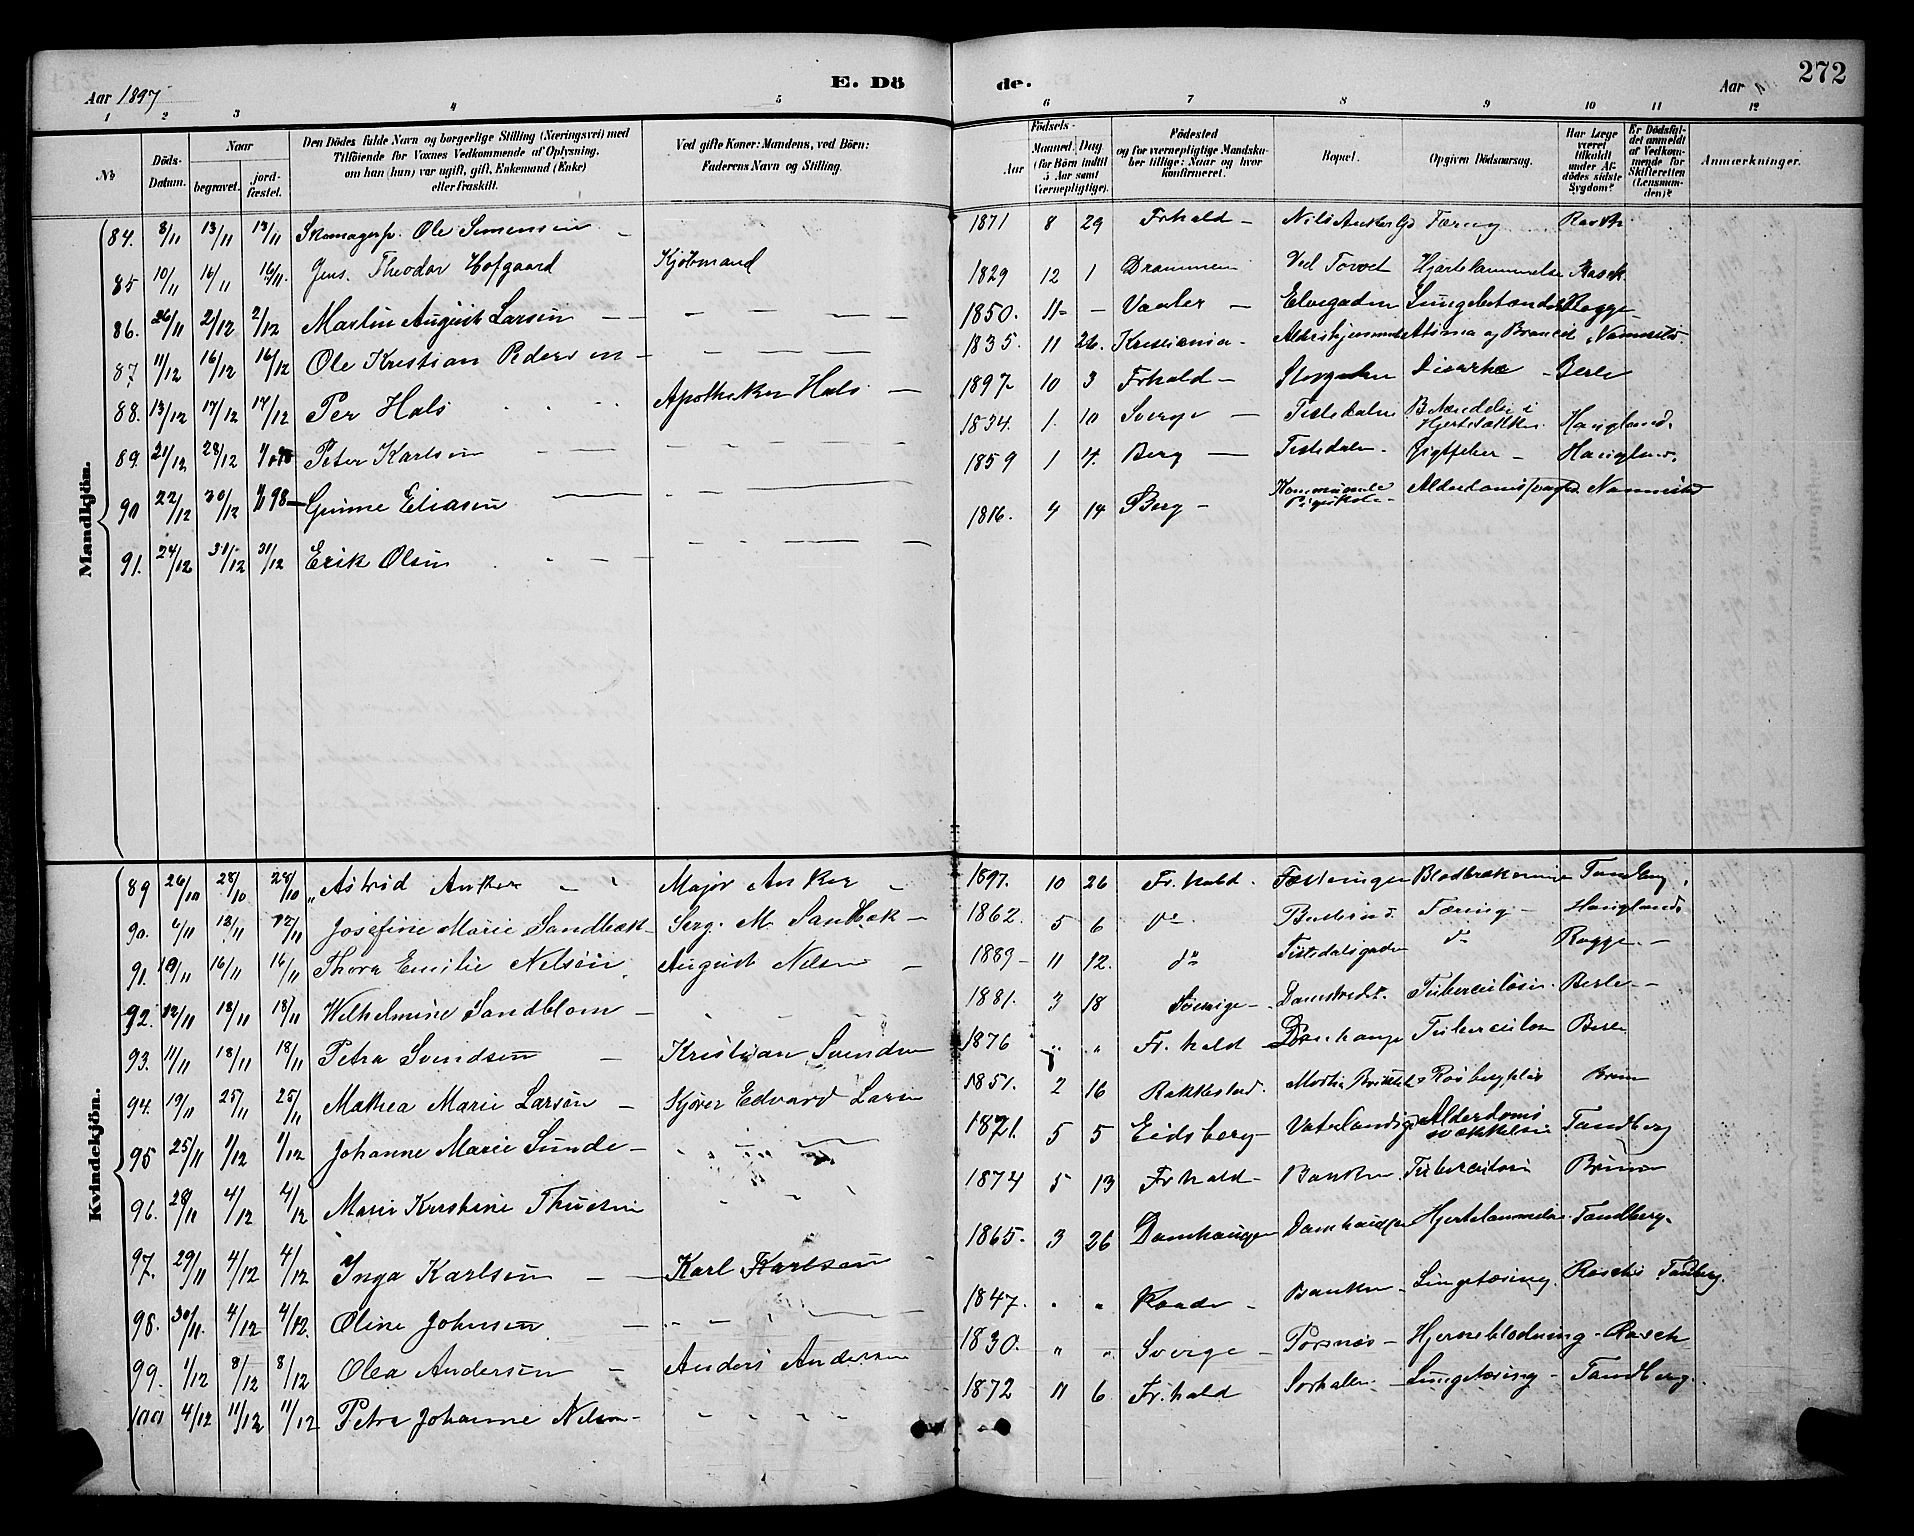 Aar 1897
E. Döde.
Aar
272
1 2 3 4 5 6 7 8 9 10 11 12
No
Döds-Datum.
Naar
begravet.
jord-fæstet.
Den Dödes fulde Navn og borgerlige Stilling (Næringsvei) med
Tilföiende for Voxnes Vedkommende af Oplysning,
om han (hun) var ugift, gift, Enkemand (Enke)
eller fraskilt.
Ved gifte Koner: Mandens, ved Börn:
Faderens Navn og Stilling.
Födsels-
Aar
Maaned. Dag
(for Börn indtil
5 Aar samt
Værnepligtige).
Födested
og for værnepligtige Mandska-
ber tillige: Naar og hvor
konfirmeret.
Bopæl.
Opgiven Dödsaarsag.
Har Læge
været
tilkaldt
under Af-
dödes sidste
Sygdom?
Er Dödsfal-
det anmeldt
af Vedkom-
mende for
Skifteretten
(Lensman-
den)?
Anmærkninger.
Mandkjön.
84. 8/11 13/11 13/11 Ole Simensen 1871 8 29 Frhald - Nils Ankers Tæring Rasch
85 10/11 16/11 16/11. Jens Theodor Hofgaard Kjöbmand 1829 12 1 Drammen Ved Torvet Hjertelammelse Rasch
86. 26/11 2/12 2/12 Martin August Larsen - - 1850. 11 - Vaaler - Elvegaden Rogge
87 11/12 16/12 16/12 Ole Kristian Pedersen - 1835. 11 26. Kristiania -
88. 13/12 17/12 17/12 Per Hals Apotheker Hals - 1897 10 3 Frhald - Storgaden - Berle
89. 21/12 28/12 Peter Karlsen 1834. 1. 10 Sverge - Tistedalen Haugland.
90 22/12 30/12 98 - Gunne Eliasen 1859 1 4. Berg - Tistedalen. Gigtfeber - Haugland.
91. 24/12 31/12 31/12 Erik Olsen 1816. 4 14 Berg -
Kvindekjön.
89 26/10 28/10 28/10 Astrid Anker Major Anker 1897. 10 26 Fr.hald. Fæstningen Tandberg.
90. 6/11 12/11 12/11 Josefine Marie Sandbæk - Serg. M. Sandbæk - 1862. 5 6 do Tæring - Haugland
91. 10/11 16/11 16/11 Thora Emilie Nelsen August Nelsen - 1889 - 11 12. do Tistedalsgaden do Rogge -
92. 12/11 18/11 18/11 Wilhelmine Sandblom - 1881. 3 18 Sverige - Tuberculose. Berle -
93. 11/11 18/11 18/11 Petra Svendsen - Kristian Svendsen 1876 " " Fr.hald Damhaugen Tuberculose Berle
94. 19/11 25/11 25/11 Mathea Marie Larsen - Kjörer Edvard Larsen 1851. 2 16 Rakkestad. Brun
95 25/11 1/12 1/12 Johanne Marie Sunde - 1821. 5 5 Eidsberg - Alderdoms svækkelse Tandberg
96. 28/11 4/12 4/12 Marie Kristine Thuesen 1874 5 13 Fr.hald - Banken Tuberculose Brun
97. 29/11 4/12 4/12 Inga Karlsen - Karl Karlsen 1865. 3 26 Damhaugen Damhaugen Hjertelammelse Tandberg.
98. 30/11. 4/12 4/12. Oline Johnsen - 1847. " " Raade - Banken - Lungetæring. Rasch Tandberg.
99. 1/12 8/12 8/12 Olea Andersen - Anders Andersen 1830. " " Sverge - Porsnes - Hjerneblödning - Rasch
100 4/12 11/12 11/12 Petra Johanne Nelsen - 1872 11 6 Fr.hald Sorhalen - Lungetæring - Tandberg.